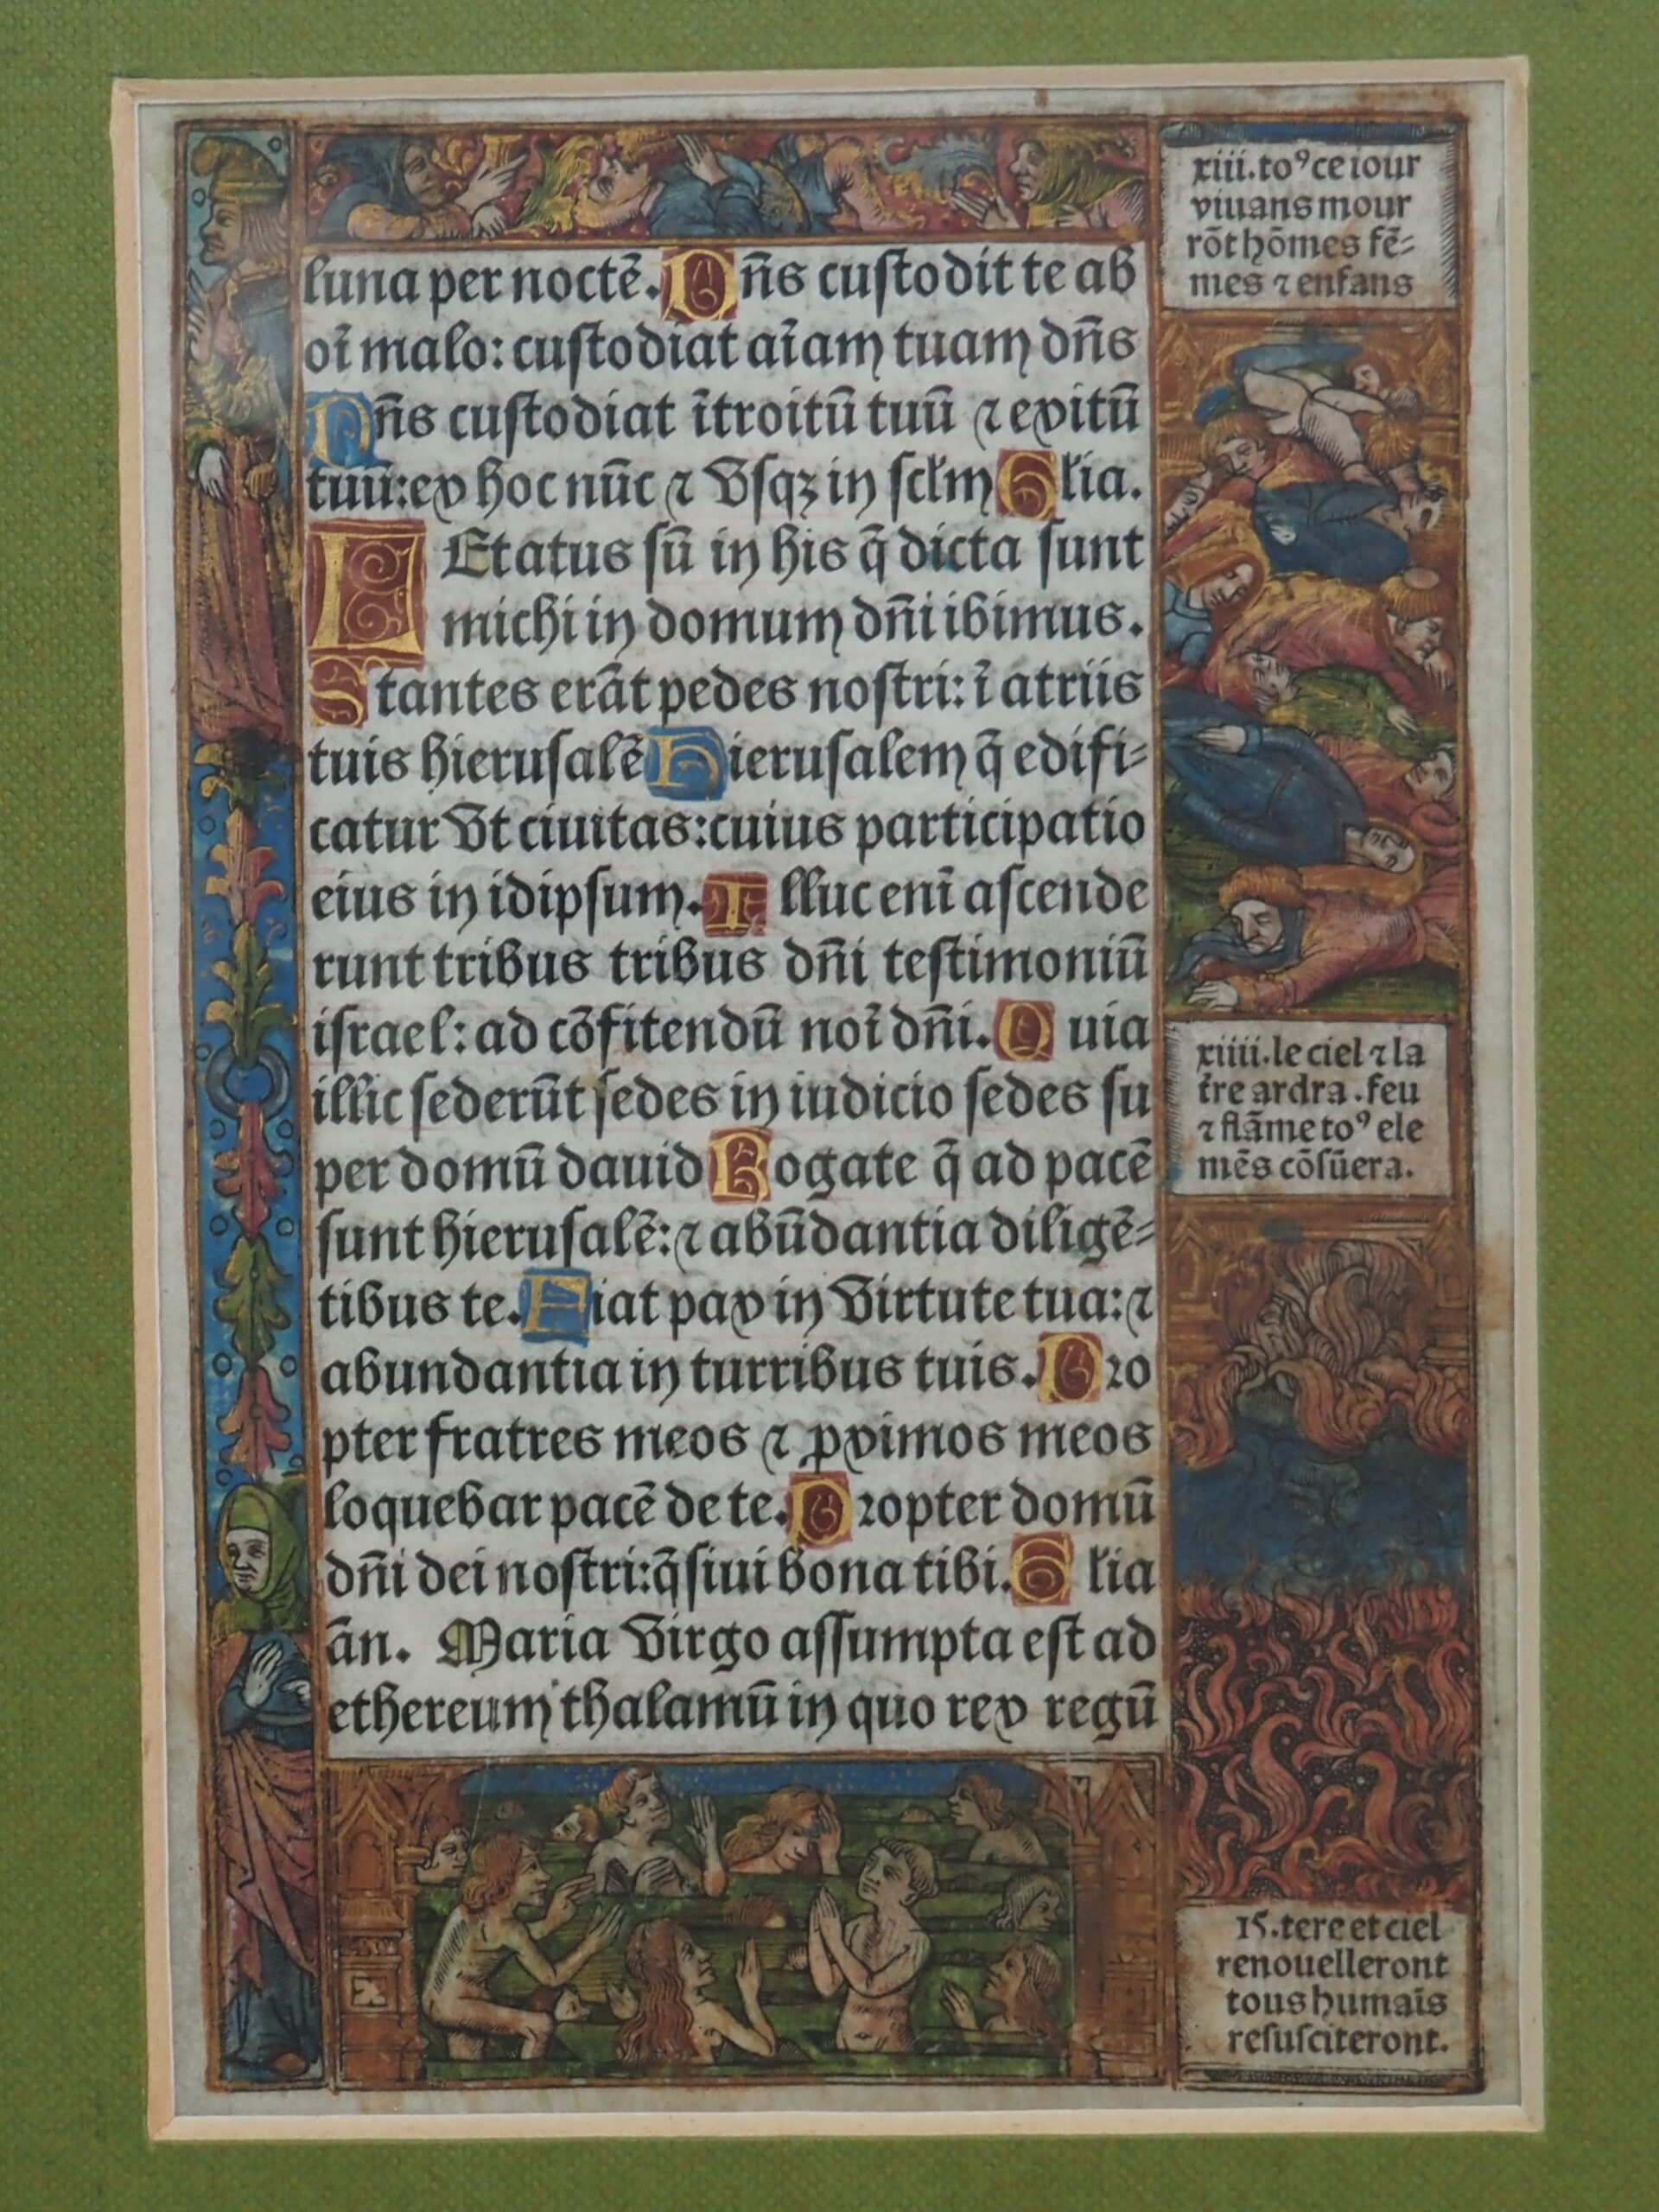 luna per noctē. Dn̄s custodit te ab
oı̄ malo: custodiat aı̄am tuam dn̄s
Dn̄s custodiat ı̄troitū tuū ⁊ exitū
tuū: ex hoc nūc ⁊ vsqꝫ in sclm̄ Gl̄ia.
LEtatus sū in his q̄ dicta sunt
michi in domum dn̄i ibimus.
Stantes erāt pedes nostri: ı̄ atriis
tuis hierusalē Hierusalem q̄ edifi-
catur vt ciuitas: cuius participatio
eius in idipsum. Illuc enı̄ ascende
runt tribus tribus dn̄i testimoniū
israel: ad cōfitendū noı̄ dn̄i. Quia
illic sederūt sedes in iudicio sedes su
per domū dauid Rogate q̄ ad pacē
sunt hierusalē: ⁊ abūdantia diligē-
tibus te. Fiat pax in virtute tua: ⁊
abundantia in turribus tuis. Pro
pter fratres meos ⁊ ꝓximos meos
loquebar pacē de te. Propter domū
dn̄i dei nostri: q̄siui bona tibi. Gl̄ia
an̄. Maria virgo assumpta est ad
ethereum thalamū in quo rex regū
xiii. toꝰ ce iour
viuans mour
rōt hōmes fē-
mes ⁊ enfans
xiiii. le ciel ⁊ la
t̄re ardra. feu
⁊ flāme toꝰ ele
mēs cōsūera.
15. tere et ciel
renouelleront
tous humaīs
resusciteront.